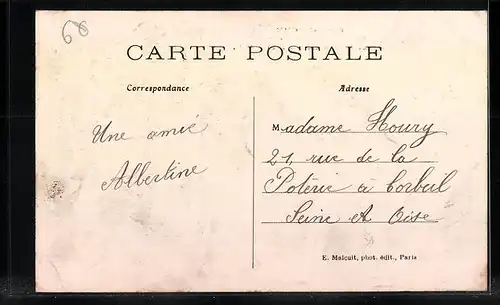 68
CARTE POSTALE
Correspondance
Adresse
Une amie
Albertine
Madame Houry
21, rue de la
Poterie à Corbeil
Seine et Oise
E. Malcuit, phot. édit., Paris